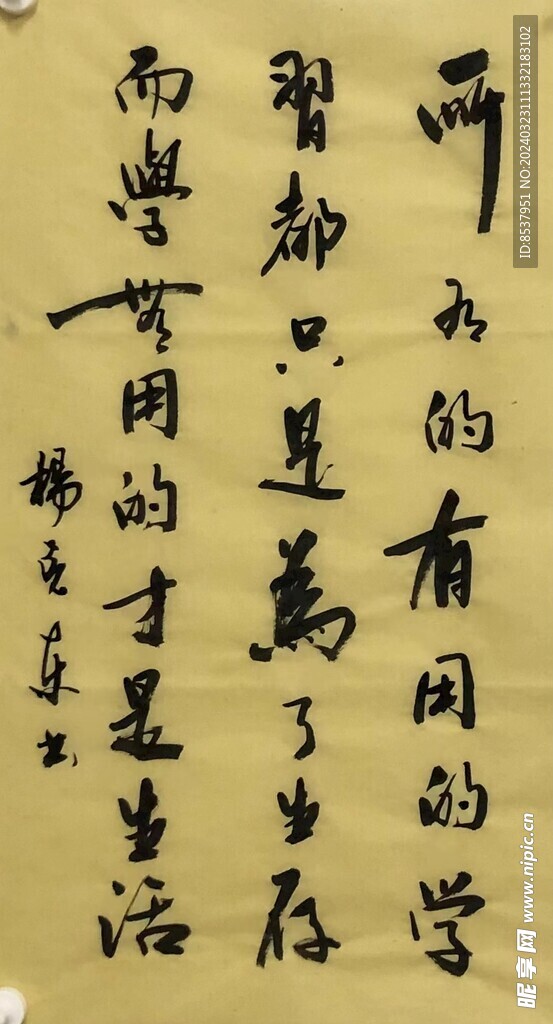 所有的有用的学
習都只是為了生存
而學無用的才是生活
楊克东书
ID:8537951 NO:20240323111332183102
昵享网 www.nipic.cn